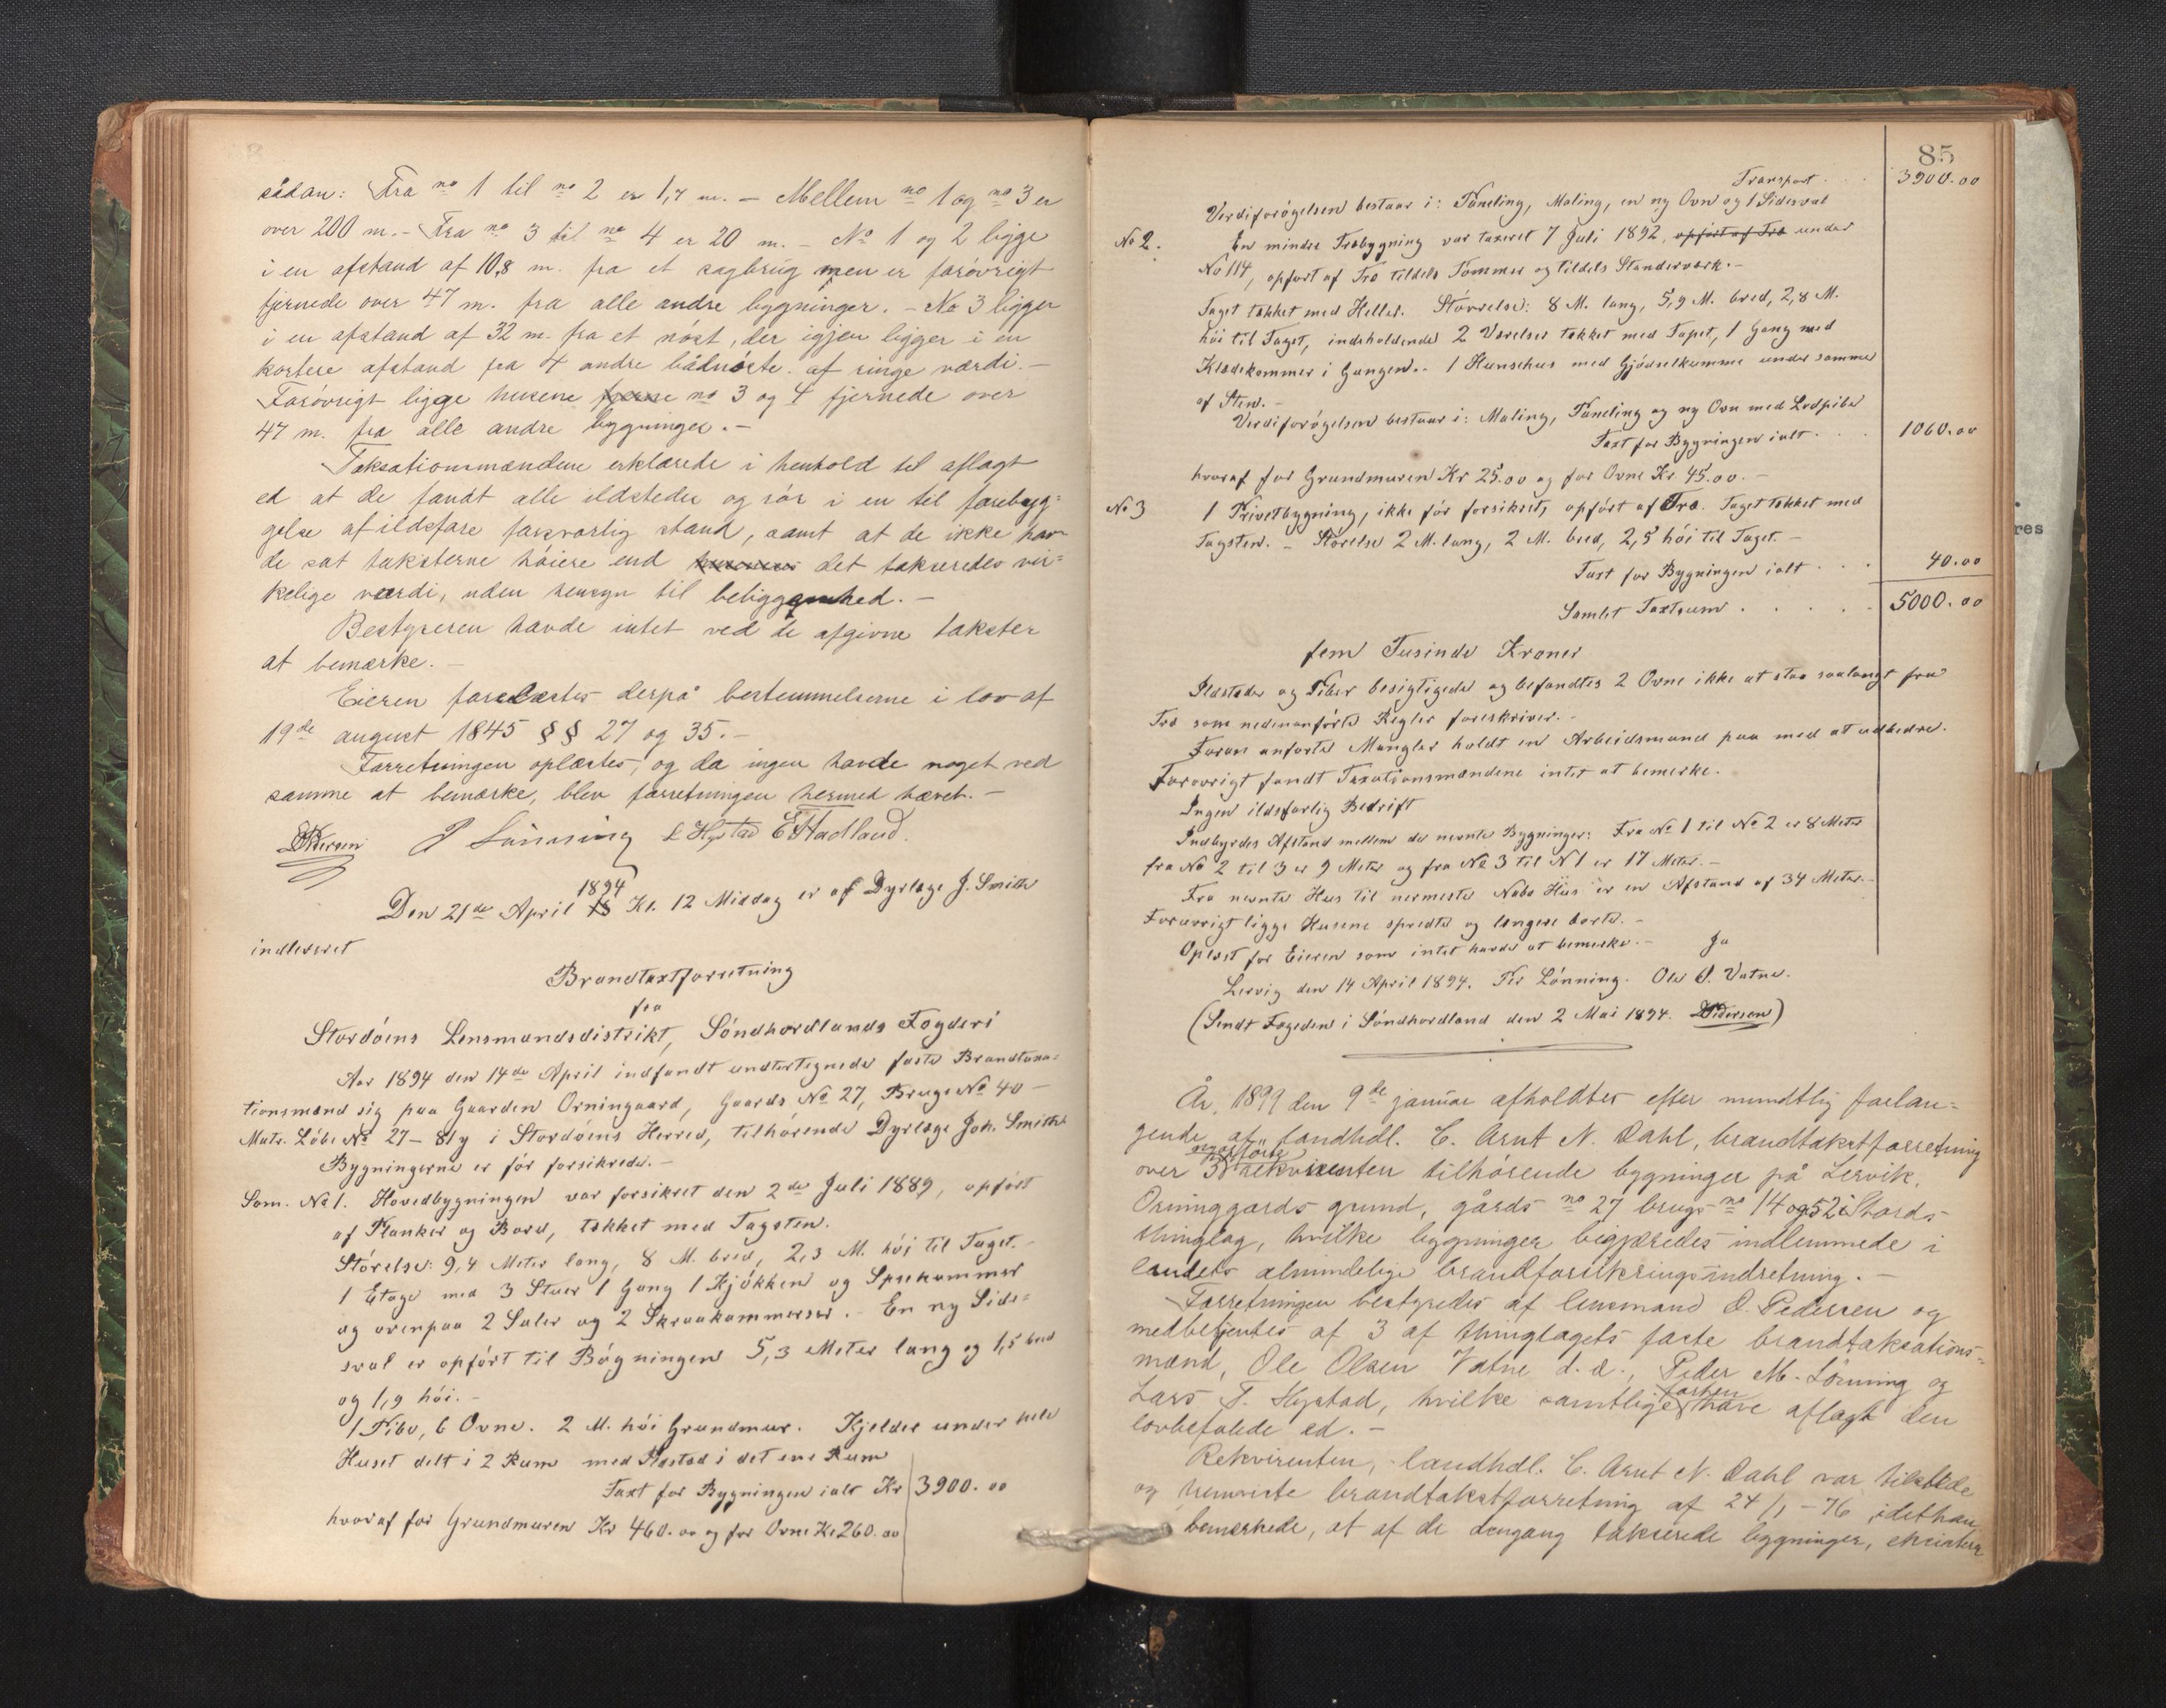 sådan: Fra no 1 til no 2 er 1,7 m. - Mellem no 1 og no 3 er
over 200 m. - Fra no 3 til no 4 er 20 m. - No 1 og 2 ligge
i en afstand af 10,8 m. fra et sagbrug men er forøvrigt
fjernede over 47 m. fra alle andre bygninger. - No 3 ligger
i en afstand af 32 m. fra et nøst, der igjen ligger i en
kortere afstand fra 4 andre bådnøste af ringe værdi. -
Forøvrigt ligge husene no 3 og 4 fjernede over
47 m. fra alle andre bygninger. -
Taksationsmændene erklærede i henhold til aflagt
ed at de fandt alle ildsteder og rør i en til forebyg=
gelse af ildsfare forsvarlig stand, samt at de ikke hav-
de sat taksterne høiere end det takseredes vir=
kelige værdi, uden hensyn til beliggenhed. -
Bestyreren havde intet ved de afgivne takster
at bemærke. -
Eieren forelæstes derpå bestemmelserne i lov af
19de august 1845 §§ 27 og 35. -
Forretningen oplæstes, og da ingen havde noget ved
samme at bemærke, blev forretningen hermed hævet. -
DPedersen P Lönning L Hystad E Hadland.
Den 21de April 1894 Kl. 12 Middag er af Dyrlæge J. Smith
indleveret
Brandtaxtforretning
fra
Stordöens Lensmandsdistrikt, Söndhordlands Fogderi
Aar 1894 den 14de April indfandt undertegnede faste Brandtaxa-
tionsmænd sig paa Gaarden Orningaard, Gaards No 27, Brugs No 40 -
Matr. Löbe No 27 - 81y i Stordöens Herred, tilhörende Dyrlæge Joh. Smith
Bygningerne er för forsikrede. -
Som. No 1. Hovedbygningen var forsikret den 2de Juli 1889, opfört
af Planker og Bord, tækket med Tagsten.
Störelse: 9,4 Meter lang, 8 M. bred, 2,3 M. höi til Taget. -
1 Etage med 3 Stuer 1 Gang 1 Kjökken og Spisekammer
og ovenpaa 2 Saler og 2 Skraakammerser. - En ny Side=
sval er opfört til Bögningen 5,3 Meter lang og 1,5 bred
og 1,9 höi. -
1 Pibe, 6 Ovne. 2 M. höi Grundmur. Kjelder under hele
Huset delt i 2 Rum med Ildsted i det ene Rum
Taxt for Bygningen ialt Kr 3900.00
hvoraf for Grundmuren Kr 460.00 og for Ovne Kr 260.00
85
Transport . . . 3900.00
Verdiforögelsen bestaar i: Paneling, Maling, en ny Ovn og 1 Sidesval
No 2. En mindre Træbygning var taxeret 7 Juli 1892, opfört af Træ under
No 114, opfört af Træ tildels Tömmer og tildels Standerværk. -
Taget tækket med Heller. Störrelse: 8 M. lang, 5,9 M. bred, 2,8 M.
höi til Taget, indeholdende 2 Værelser tækket med Tapet, 1 Gang med
Klædekammer i Gangen. - 1 Hønsehus med Gjödselkumme under samme
af Sten. -
Verdiforögelsen bestaar i: Maling, Paneling og ny Ovn med Lodpibe
Taxt for Bygningen ialt . . . 1060.00
hvoraf for Grundmuren Kr 25.00 og for Ovne Kr 45.00. -
No 3 1 Privetbygning, ikke för forsikret, opfört af Træ. Taget tækket med
Tagsten. - Störelse 2 M. lang, 2 M. bred, 2,5 höi til Taget. -
Taxt for Bygningen ialt . . . 40.00
Samlet Taxtsum . . . . . 5000.00
fem Tusinde Kroner
Ildsteder og Piber besigtigede og befandtes 2 Ovne ikke at staa saalangt fra
Træ som nedenanförte Regler foreskriver. -
Foran anförte Mangler holdt en Arbeidsmand paa med at udbedre.
Forövrigt fandt Taxationsmændene intet at bemerke.
Ingen ildsfarlig Bedrift
Indbyrdes Afstand mellem de nevnte Bygninger: Fra No 1 til No 2 er 8 Meter
fra No 2 til 3 er 9 Meter og fra No 3 til N 1 er 17 Meter. -
Fra nevnte Hus til nermeste Nabo Hus er en Afstand af 34 Meter. -
Forövrigt ligge Husene spredte og længere borte. -
Oplest for Eieren som intet havde at bemerke. - Ja
Lervig den 14 April 1894. Per Lönning. Ole O. Vatne.
(Sendt Fogeden i Söndhordland den 2 Mai 1894. DPedersen)
År 1899 den 9de januar afholdtes efter mundtlig forlan=
gende af landhdl. C. Arnt N. Dahl, brandtakstforretning
over rekvirenten tilhørende bygninger på Lervik,
Orninggårds grund, gårds no 27 brugs no 14 og 52 i Stords
thinglag, hvilke bygninger begjæredes indlemmede i
landets almindelige brandforsikringsindretning. -
Forretningen bestyredes af lensmand D. Pedersen og
medbetjentes af 3 af thinglagets faste brandtaksations=
mænd, Ole Olsen Vatne d. æ., Peder M. Lönning og
Lars T. Hystad, hvilke samtlige have aflagt den
lovbefalede ed. -
Rekvirenten, landhdl. C. Arnt N. Dahl var tilstede
og henviste brandtakstforretning af 24/1 - 76, idet han
bemerkede, at af de dengang takserede bygninger, eksisterer
res